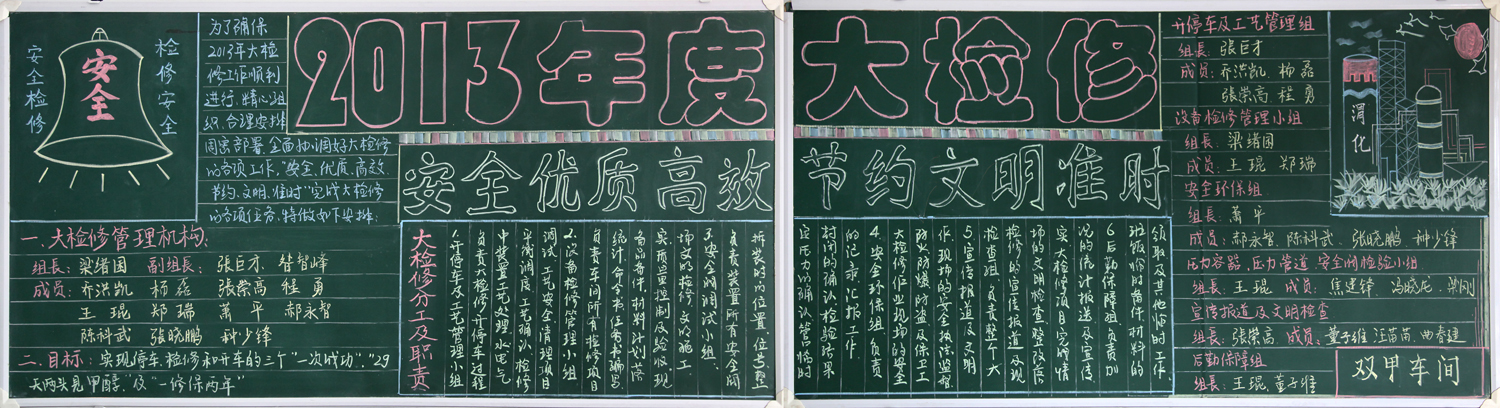 安全检修
安全
检修安全
为了确保
2013年大检
修工作顺利
进行,精心组
织、合理安排
周密部署,全面协调好大检修
的各项工作,"安全、优质、高效、
节约、文明、准时"完成大检修
的各项任务,特做如下安排:
一、大检修管理机构:
组长:梁绪国 副组长:张巨才、昝智峰
成员:乔洪凯 杨磊 张荣高 程勇
王琨 郑瑞 萧平 郝永智
陈科武 张晓鹏 种少锋
二、目标:实现停车、检修和开车的三个"一次成功"."29
天两头见甲醇,及"一修保两年"
2013年度
大检修
安全优质高效
节约文明准时
大检修分工及职责
1.开停车及工艺管理小组
负责大检修开停车过程
中装置工艺处理、水电气
平衡调度、工艺确认、检修
调试、工艺安全清理项目
2.设备检修管理小组
负责车间所有检修项目
统计,命令书任务书编写
备品备件材料计划落
实,质量控制及验收,现
场文明检修、文明施工
3.安全阀调试小组:
负责装置所有安全阀
拆装的的位置、位号、整
定压力确认,盲肠
封闭的确认,检验结果
的记录、汇报工作
4.安全环保组:负责
大检修作业现场的安全
防火防爆防盗及保卫工
作、现场的安全执法监督
5.宣传报道及文明
检查组:负责整个大
检修的宣传报道及现
场的文明检查、整改落
实,大检修项目完成情
况的统计报送及宣传
6.后勤保障组:负责加
班饭、临时备件材料的
领取及其他临时工作
开停车及工艺管理组
组长:张巨才
成员:乔洪凯、杨磊
张荣高、程勇
设备检修管理小组
组长:梁绪国
成员:王琨 郑瑞
安全环保组
组长:萧平
成员:郝永智、陈科武、张晓鹏 种少锋
压力容器、压力管道、安全阀检验小组
组长:王琨 成员:焦建锋、冯晓龙、梁刚
宣传报道及文明检查
组长:张荣高 成员:董子维 汪苗苗、曲春建
后勤保障组
组长:王琨、董子维
渭化
双甲车间